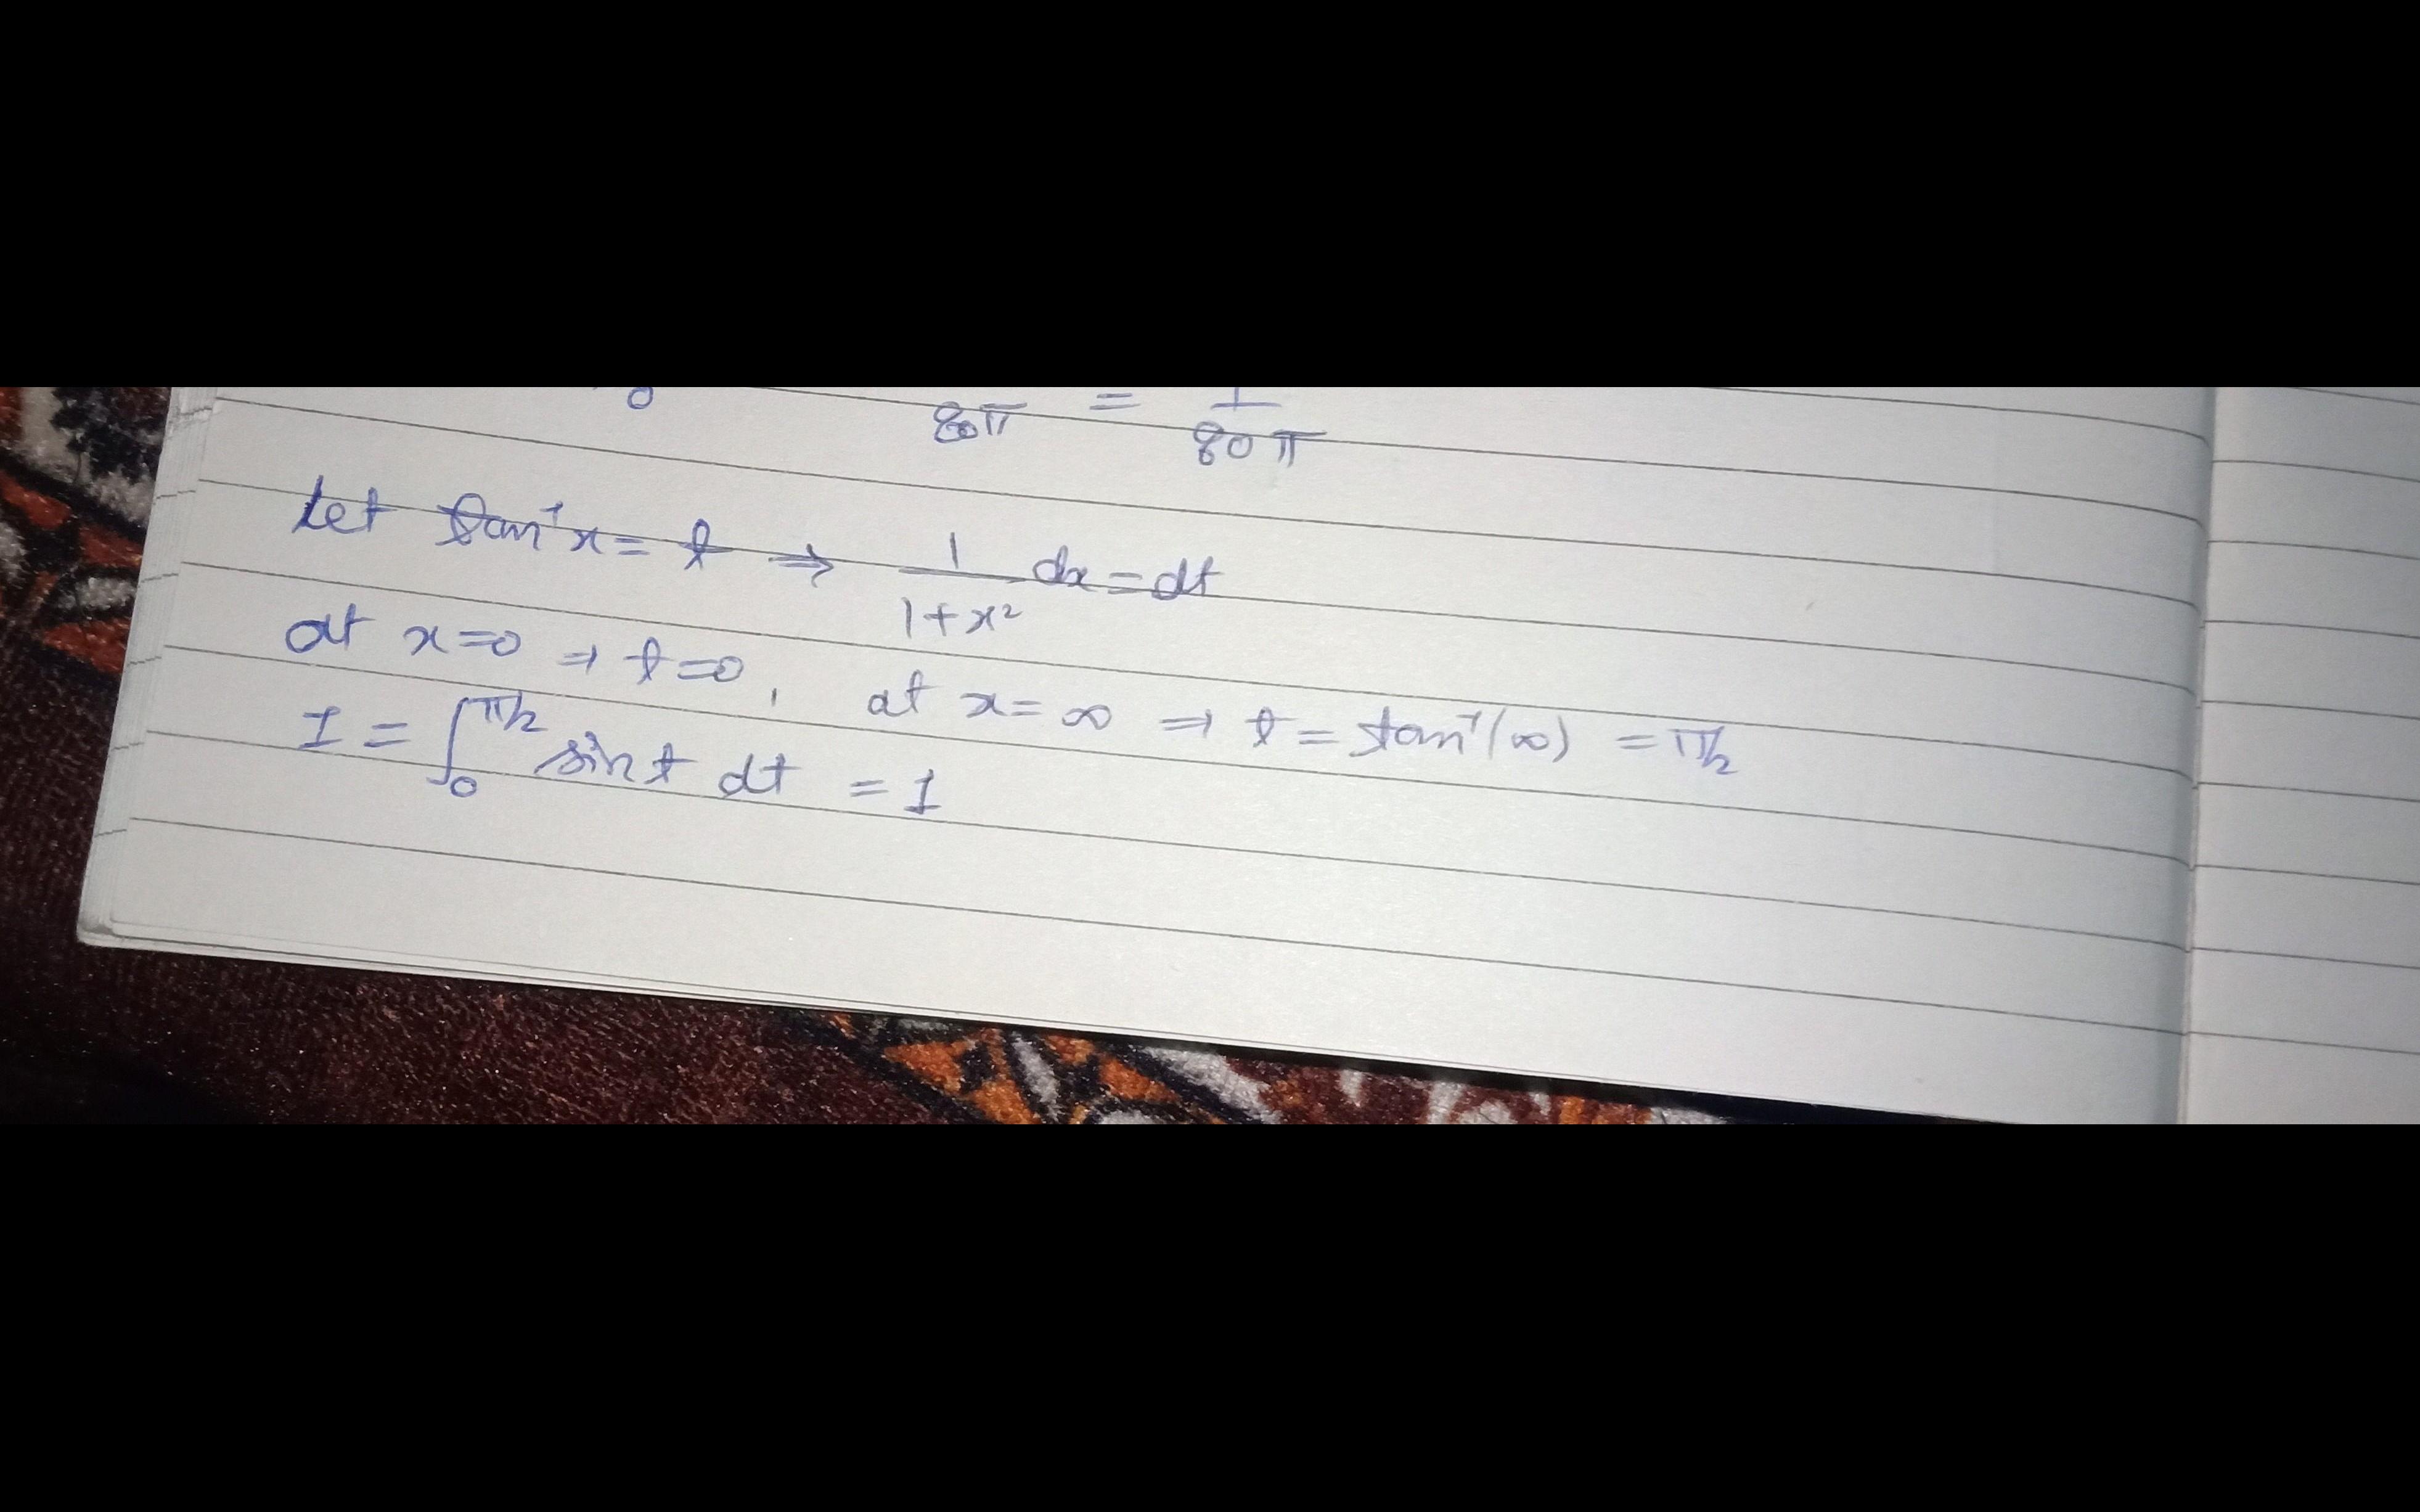 0 80π = 1/80π
Let tan⁻¹x = t ⇒ 1/(1+x²) dx = dt
at x=0 ⇒ t=0, at x=∞ ⇒ t = tan⁻¹(∞) = π/2
I = ∫₀^(π/2) sin t dt = 1